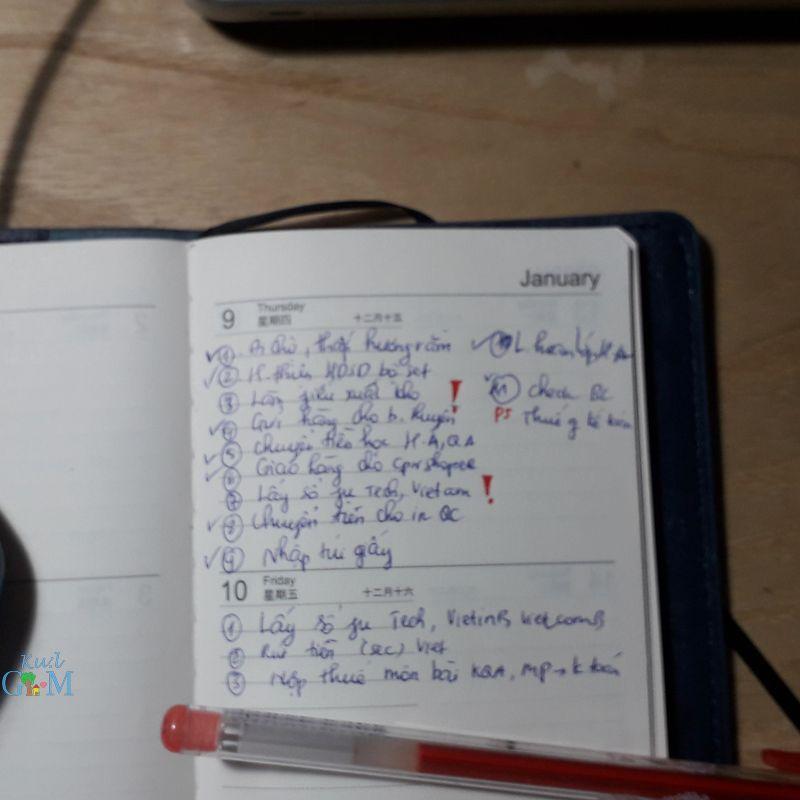 January
9 Thursday
星期四 十二月十五
① Đi chợ, thắp hương rằm
② H. thiện HDSD bộ set
③ Làm phiếu xuất kho !
④ Gửi hàng cho b. Huyền !
⑤ Chuyển tiền học H.A, Q.A
⑥ Giao hàng cho shopee
⑦ Lấy sổ phụ Tech, Vietcom !
⑧ Chuyển tiền cho in QC
⑨ Nhập túi giấy
⑩ L
⑪ Check QC
PS Thuế
10 Friday
星期五 十二月十六
① Lấy sổ phụ Tech, VietinB VietcomB
② Rút tiền (sec) Viet
③ Nộp thuế môn bài KQA, MP → K toán
Kuil
GM